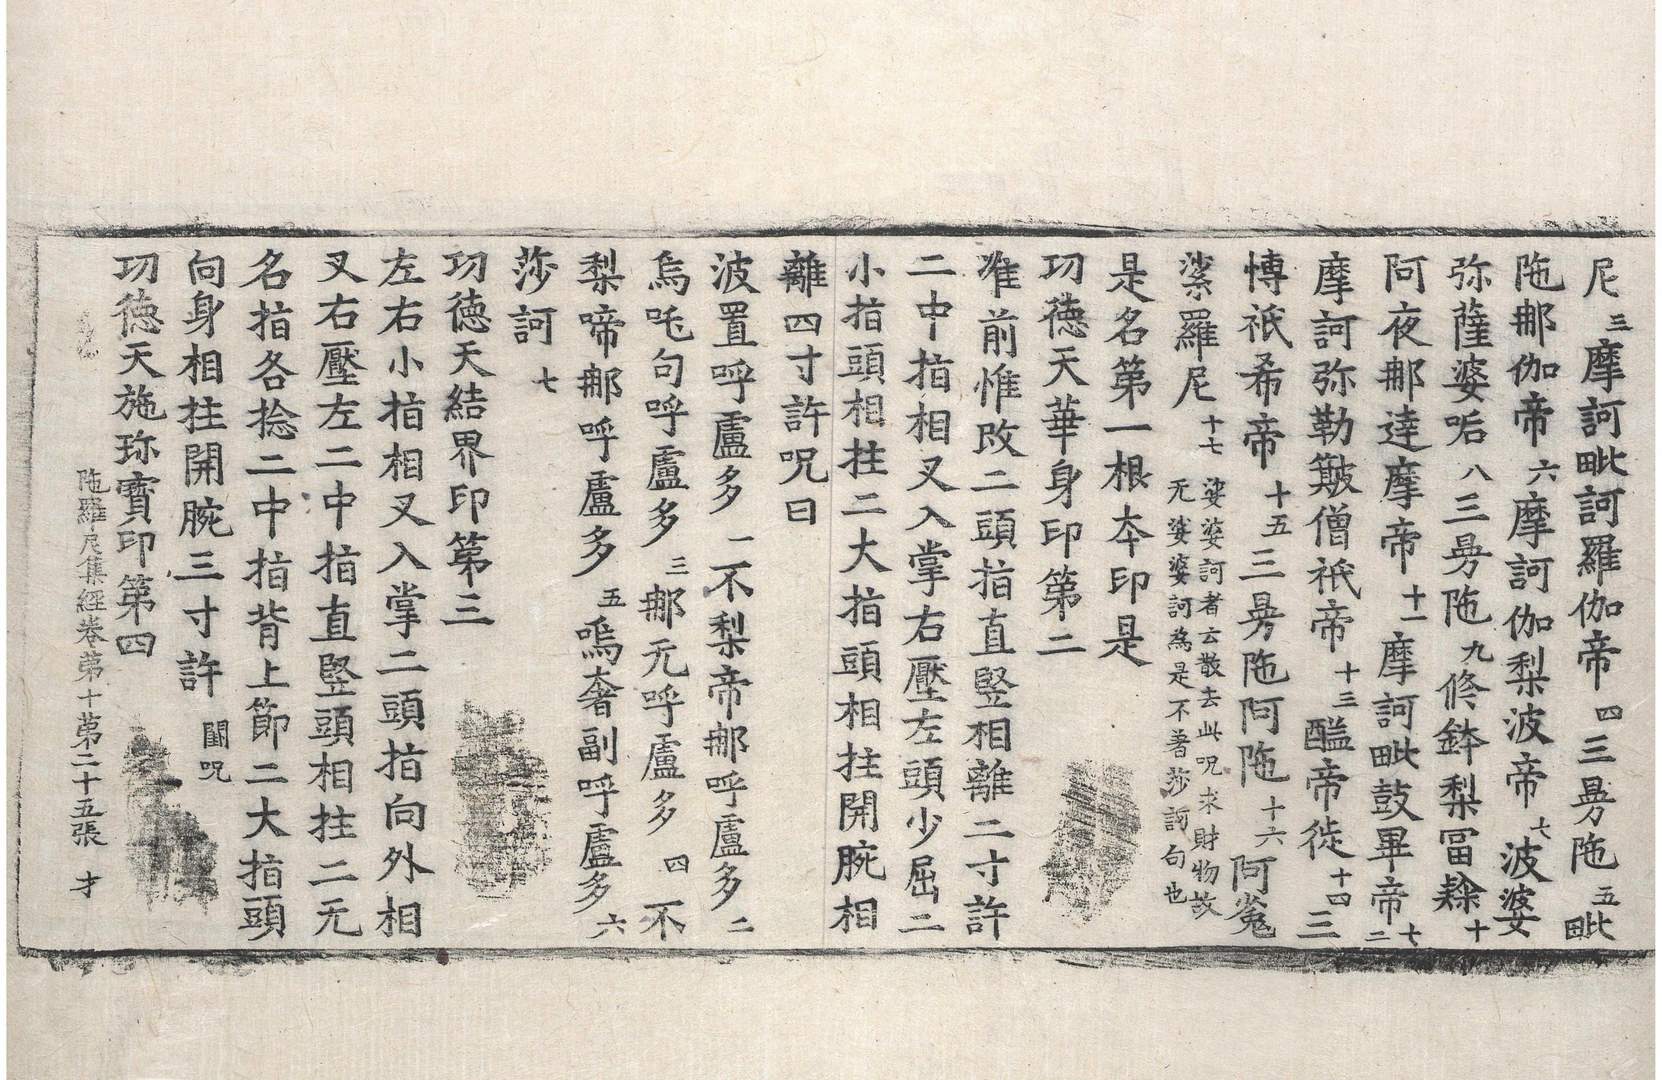 尼三摩訶毗訶羅伽帝四三曼陁五毗
陁那伽帝六摩訶伽梨波帝七波婆
弥薩婆哆八三曼陁九修鉢梨冨𨽻十
阿夜那達摩帝十一摩訶毗鼓畢帝十二
摩訶弥勒簸僧祇帝十三醯帝徙十四三
博祇希帝十五三曼陁阿陁十六阿㝹
娑羅尼十七娑婆訶者云散去此呪求財物故
无娑婆訶為是不著莎訶句也
是名第一根本印是
功徳天華身印第二
准前惟改二頭指直竪相離二寸許
二中指相叉入掌右壓左頭少屈二
小指頭相拄二大指頭相拄開腕相
離四寸許呪曰
波置呼盧多一不梨帝那呼盧多二
烏吒句呼盧多三那无呼盧多四不
梨啼那呼盧多五嗚奢副呼盧多六
莎訶七
功徳天結界印第三
左右小指相叉入掌二頭指向外相
叉右壓左二中指直竪頭相拄二无
名指各捻二中指背上節二大指頭
向身相拄開腕三寸許 闕呪
功徳天施珎寳印第四
陁羅尼集經卷第十第二十五張 才